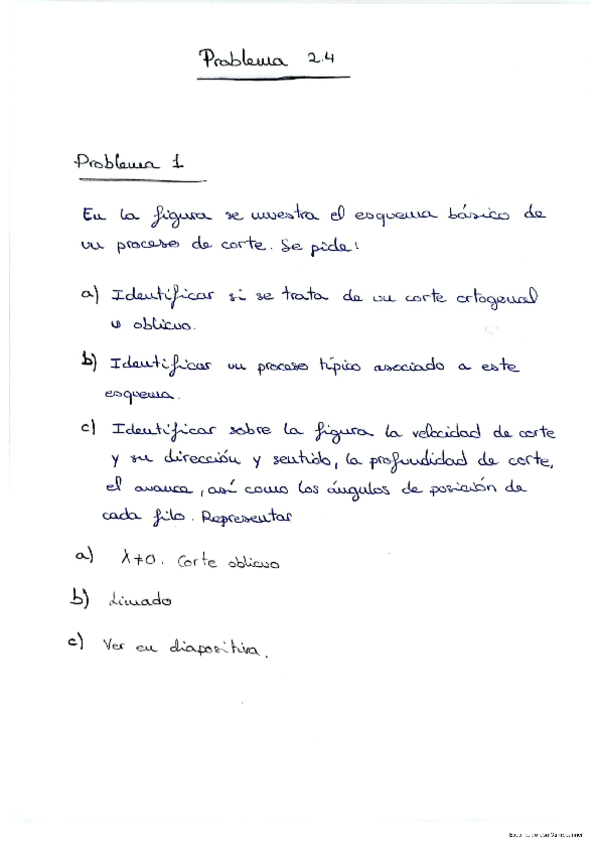 Problema 2.4
Problema 1
En la figura se muestra el esquema básico de
un proceso de corte. Se pide:
a) Identificar si se trata de un corte ortogonal
u oblicuo.
b) Identificar un proceso típico asociado a este
esquema.
c) Identificar sobre la figura la velocidad de corte
y su dirección y sentido, la profundidad de corte,
el avance, así como los ángulos de posición de
cada filo. Representar
a) λ≠0. Corte oblicuo
b) Limado
c) Ver en diapositiva.